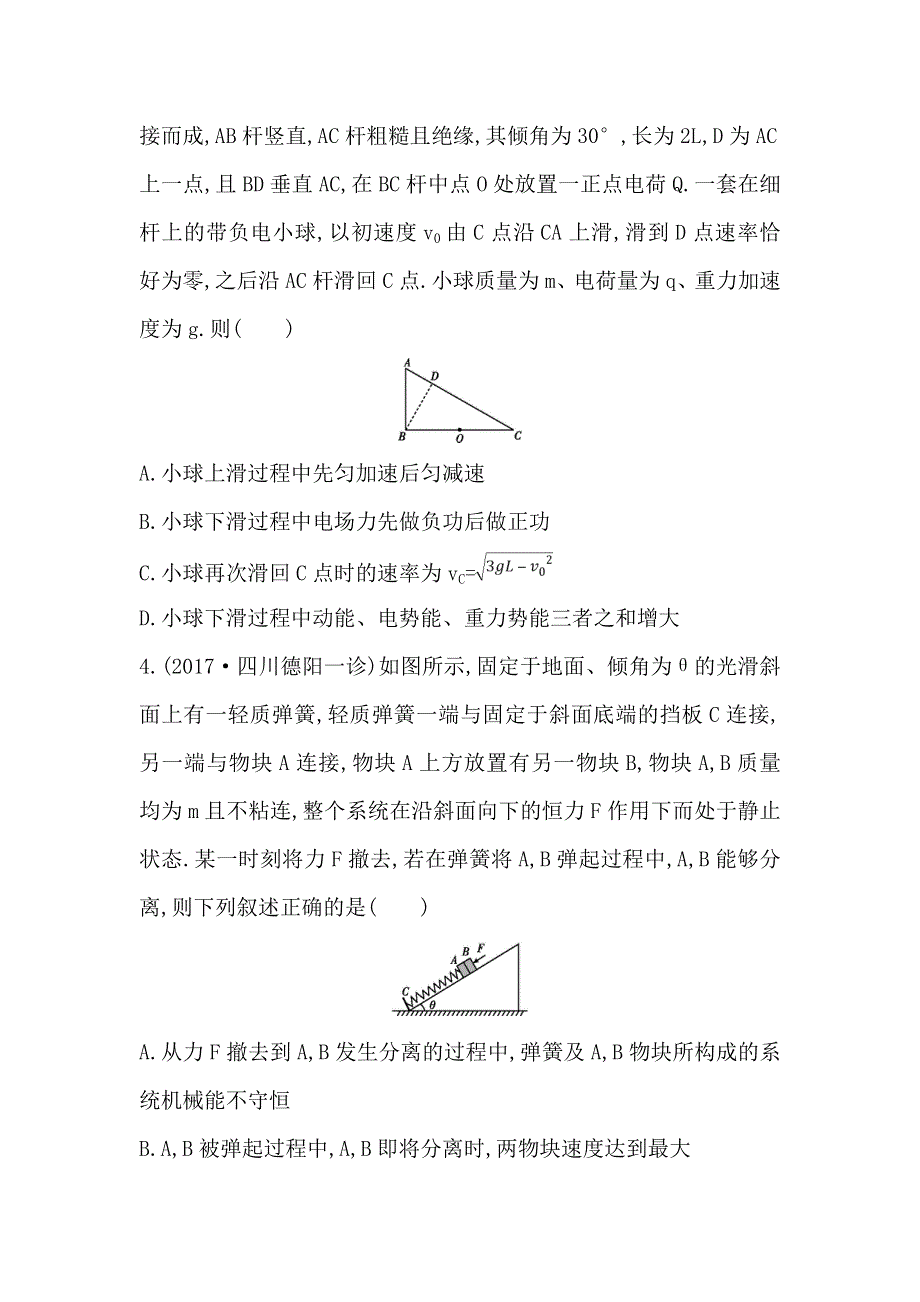 接而成,AB杆竖直,AC杆粗糙且绝缘,其倾角为30°,长为2L,D为AC
上一点,且BD垂直AC,在BC杆中点O处放置一正点电荷Q.一套在细
杆上的带负电小球,以初速度v0由C点沿CA上滑,滑到D点速率恰
好为零,之后沿AC杆滑回C点.小球质量为m、电荷量为q、重力加速
度为g.则(　　)
A
D
B
O
C
A.小球上滑过程中先匀加速后匀减速
B.小球下滑过程中电场力先做负功后做正功
C.小球再次滑回C点时的速率为vC=√(3gL－v0²)
D.小球下滑过程中动能、电势能、重力势能三者之和增大
4.(2017·四川德阳一诊)如图所示,固定于地面、倾角为θ的光滑斜
面上有一轻质弹簧,轻质弹簧一端与固定于斜面底端的挡板C连接,
另一端与物块A连接,物块A上方放置有另一物块B,物块A,B质量
均为m且不粘连,整个系统在沿斜面向下的恒力F作用下而处于静止
状态.某一时刻将力F撤去,若在弹簧将A,B弹起过程中,A,B能够分
离,则下列叙述正确的是(　　)
A B F
C
θ
A.从力F撤去到A,B发生分离的过程中,弹簧及A,B物块所构成的系
统机械能不守恒
B.A,B被弹起过程中,A,B即将分离时,两物块速度达到最大